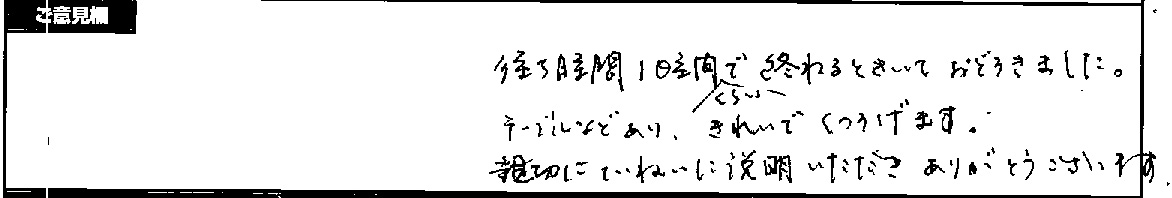 ご意見欄
待ち時間1時間くらいで終わるときいておどろきました。
テーブルなどあり、きれいでくつろげます。
親切にていねいに説明いただきありがとうございます。